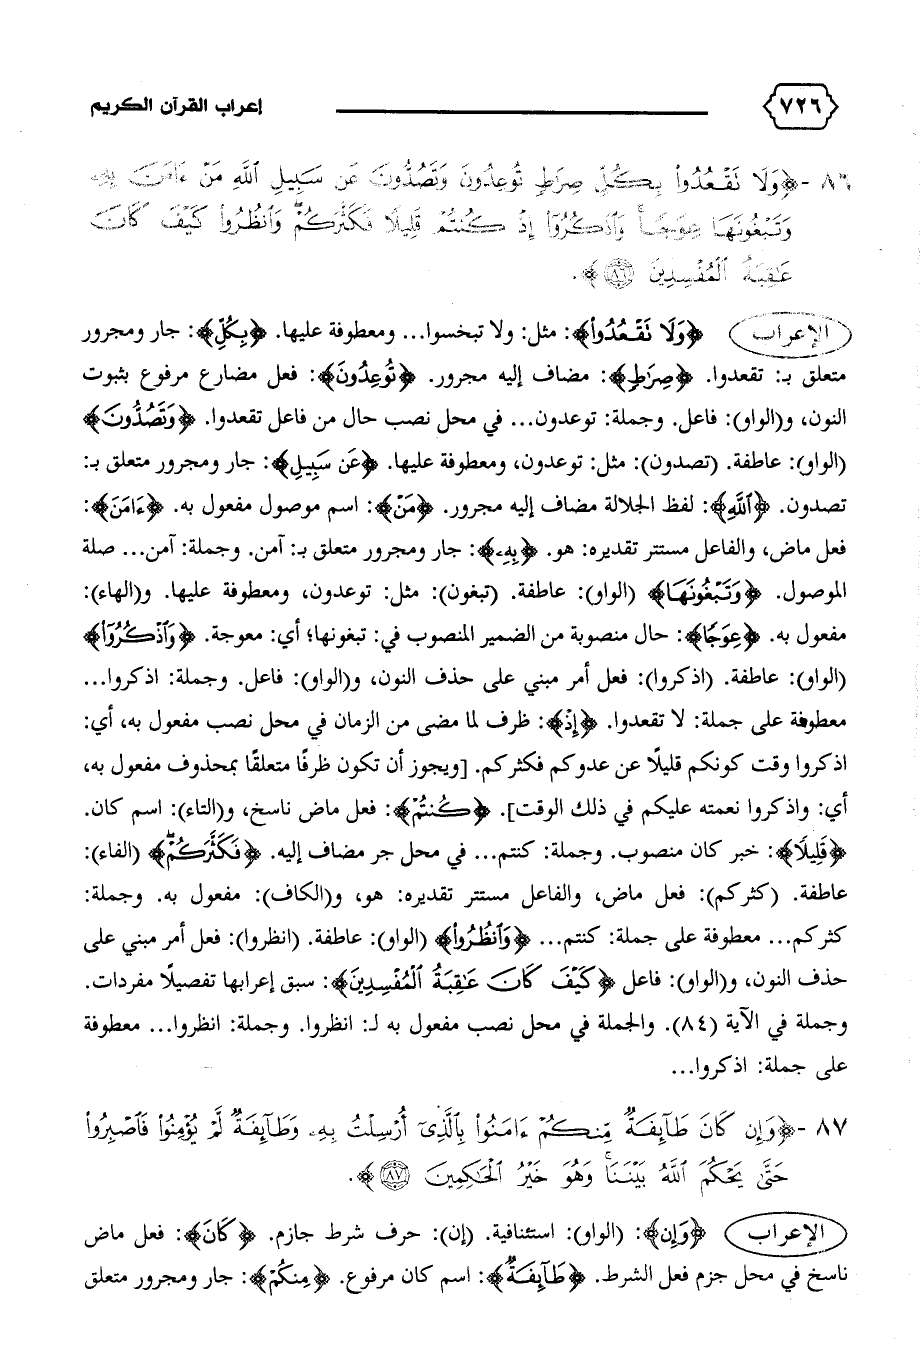 ﴿٧٢٦﴾ إعراب القرآن الكريم
٨٦ -﴿وَلَا نَقْعُدُواْ بِكُلِّ صِرَاطٍ تُوعِدُونَ وَتَصُدُّونَ عَن سَبِيلِ ٱللَّهِ مَنْ ءَامَنَ بِهِۦ
وَتَبْغُونَهَا عِوَجًاۚ وَٱذْكُرُوٓاْ إِذْ كُنتُمْ قَلِيلًا فَكَثَّرَكُمْۖ وَٱنظُرُواْ كَيْفَ كَانَ
عَٰقِبَةُ ٱلْمُفْسِدِينَ ٨٦﴾.
الإعراب ﴿وَلَا نَقْعُدُواْ﴾: مثل: ولا تبخسوا... ومعطوفة عليها. ﴿بِكُلِّ﴾: جار ومجرور
متعلق بـ: تقعدوا. ﴿صِرَاطٍ﴾: مضاف إليه مجرور. ﴿تُوعِدُونَ﴾: فعل مضارع مرفوع بثبوت
النون، و(الواو): فاعل. وجملة: توعدون... في محل نصب حال من فاعل تقعدوا. ﴿وَتَصُدُّونَ﴾
(الواو): عاطفة. (تصدون): مثل: توعدون، ومعطوفة عليها. ﴿عَن سَبِيلِ﴾: جار ومجرور متعلق بـ:
تصدون. ﴿ٱللَّهِ﴾: لفظ الجلالة مضاف إليه مجرور. ﴿مَنْ﴾: اسم موصول مفعول به. ﴿ءَامَنَ﴾:
فعل ماض، والفاعل مستتر تقديره: هو. ﴿بِهِۦ﴾: جار ومجرور متعلق بـ: آمن. وجملة: آمن... صلة
الموصول. ﴿وَتَبْغُونَهَا﴾ (الواو): عاطفة. (تبغون): مثل: توعدون، ومعطوفة عليها. و(الهاء):
مفعول به. ﴿عِوَجًا﴾: حال منصوبة من الضمير المنصوب في: تبغونها؛ أي: معوجة. ﴿وَٱذْكُرُوٓاْ﴾
(الواو): عاطفة. (اذكروا): فعل أمر مبني على حذف النون، و(الواو): فاعل. وجملة: اذكروا...
معطوفة على جملة: لا تقعدوا. ﴿إِذْ﴾: ظرف لما مضى من الزمان في محل نصب مفعول به، أي:
اذكروا وقت كونكم قليلًا عن عدوكم فكثركم. [ويجوز أن تكون ظرفًا متعلقًا بمحذوف مفعول به،
أي: واذكروا نعمته عليكم في ذلك الوقت]. ﴿كُنتُمْ﴾: فعل ماض ناسخ، و(التاء): اسم كان.
﴿قَلِيلًا﴾: خبر كان منصوب. وجملة: كنتم... في محل جر مضاف إليه. ﴿فَكَثَّرَكُمْۖ﴾ (الفاء):
عاطفة. (كثركم): فعل ماض، والفاعل مستتر تقديره: هو، و(الكاف): مفعول به. وجملة:
كثركم... معطوفة على جملة: كنتم... ﴿وَٱنظُرُواْ﴾ (الواو): عاطفة. (انظروا): فعل أمر مبني على
حذف النون، و(الواو): فاعل ﴿كَيْفَ كَانَ عَٰقِبَةُ ٱلْمُفْسِدِينَ﴾: سبق إعرابها تفصيلًا مفردات.
وجملة في الآية (٨٤). والجملة في محل نصب مفعول به لـ: انظروا. وجملة: انظروا... معطوفة
على جملة: اذكروا...
٨٧ -﴿وَإِن كَانَ طَآئِفَةٌ مِّنكُمْ ءَامَنُواْ بِٱلَّذِىٓ أُرْسِلْتُ بِهِۦ وَطَآئِفَةٌ لَّمْ يُؤْمِنُواْ فَٱصْبِرُواْ
حَتَّىٰ يَحْكُمَ ٱللَّهُ بَيْنَنَاۚ وَهُوَ خَيْرُ ٱلْحَٰكِمِينَ ٨٧﴾.
الإعراب ﴿وَإِن﴾: (الواو): استئنافية. (إن): حرف شرط جازم. ﴿كَانَ﴾: فعل ماض
ناسخ في محل جزم فعل الشرط. ﴿طَآئِفَةٌ﴾: اسم كان مرفوع. ﴿مِنكُمْ﴾: جار ومجرور متعلق